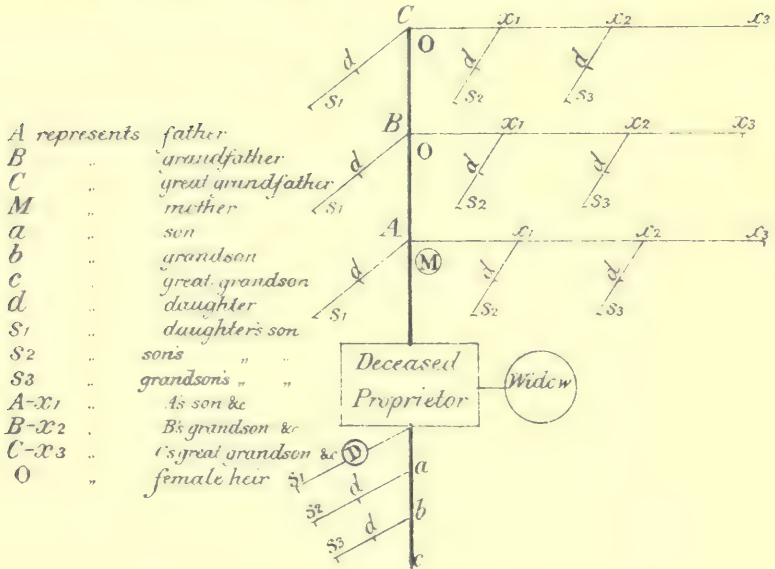 C x1 x2 x3
O
d d d
S1 S2 S3
B x1 x2 x3
O
d d d
S1 S2 S3
A x1 x2 x3
M
d d d
S1 S2 S3
A represents father
B „ grandfather
C „ great grandfather
M „ mother
a „ son
b „ grandson
c „ great grandson
d „ daughter
S1 „ daughter's son
S2 „ son's „ „
S3 „ grandson's „ „
A-x1 „ A's son &c
B-x2 „ B's grandson &c
C-x3 „ C's great grandson &c
O „ female heir
Deceased
Proprietor
Widow
D
S1 a
d
S2
d b
S3
c